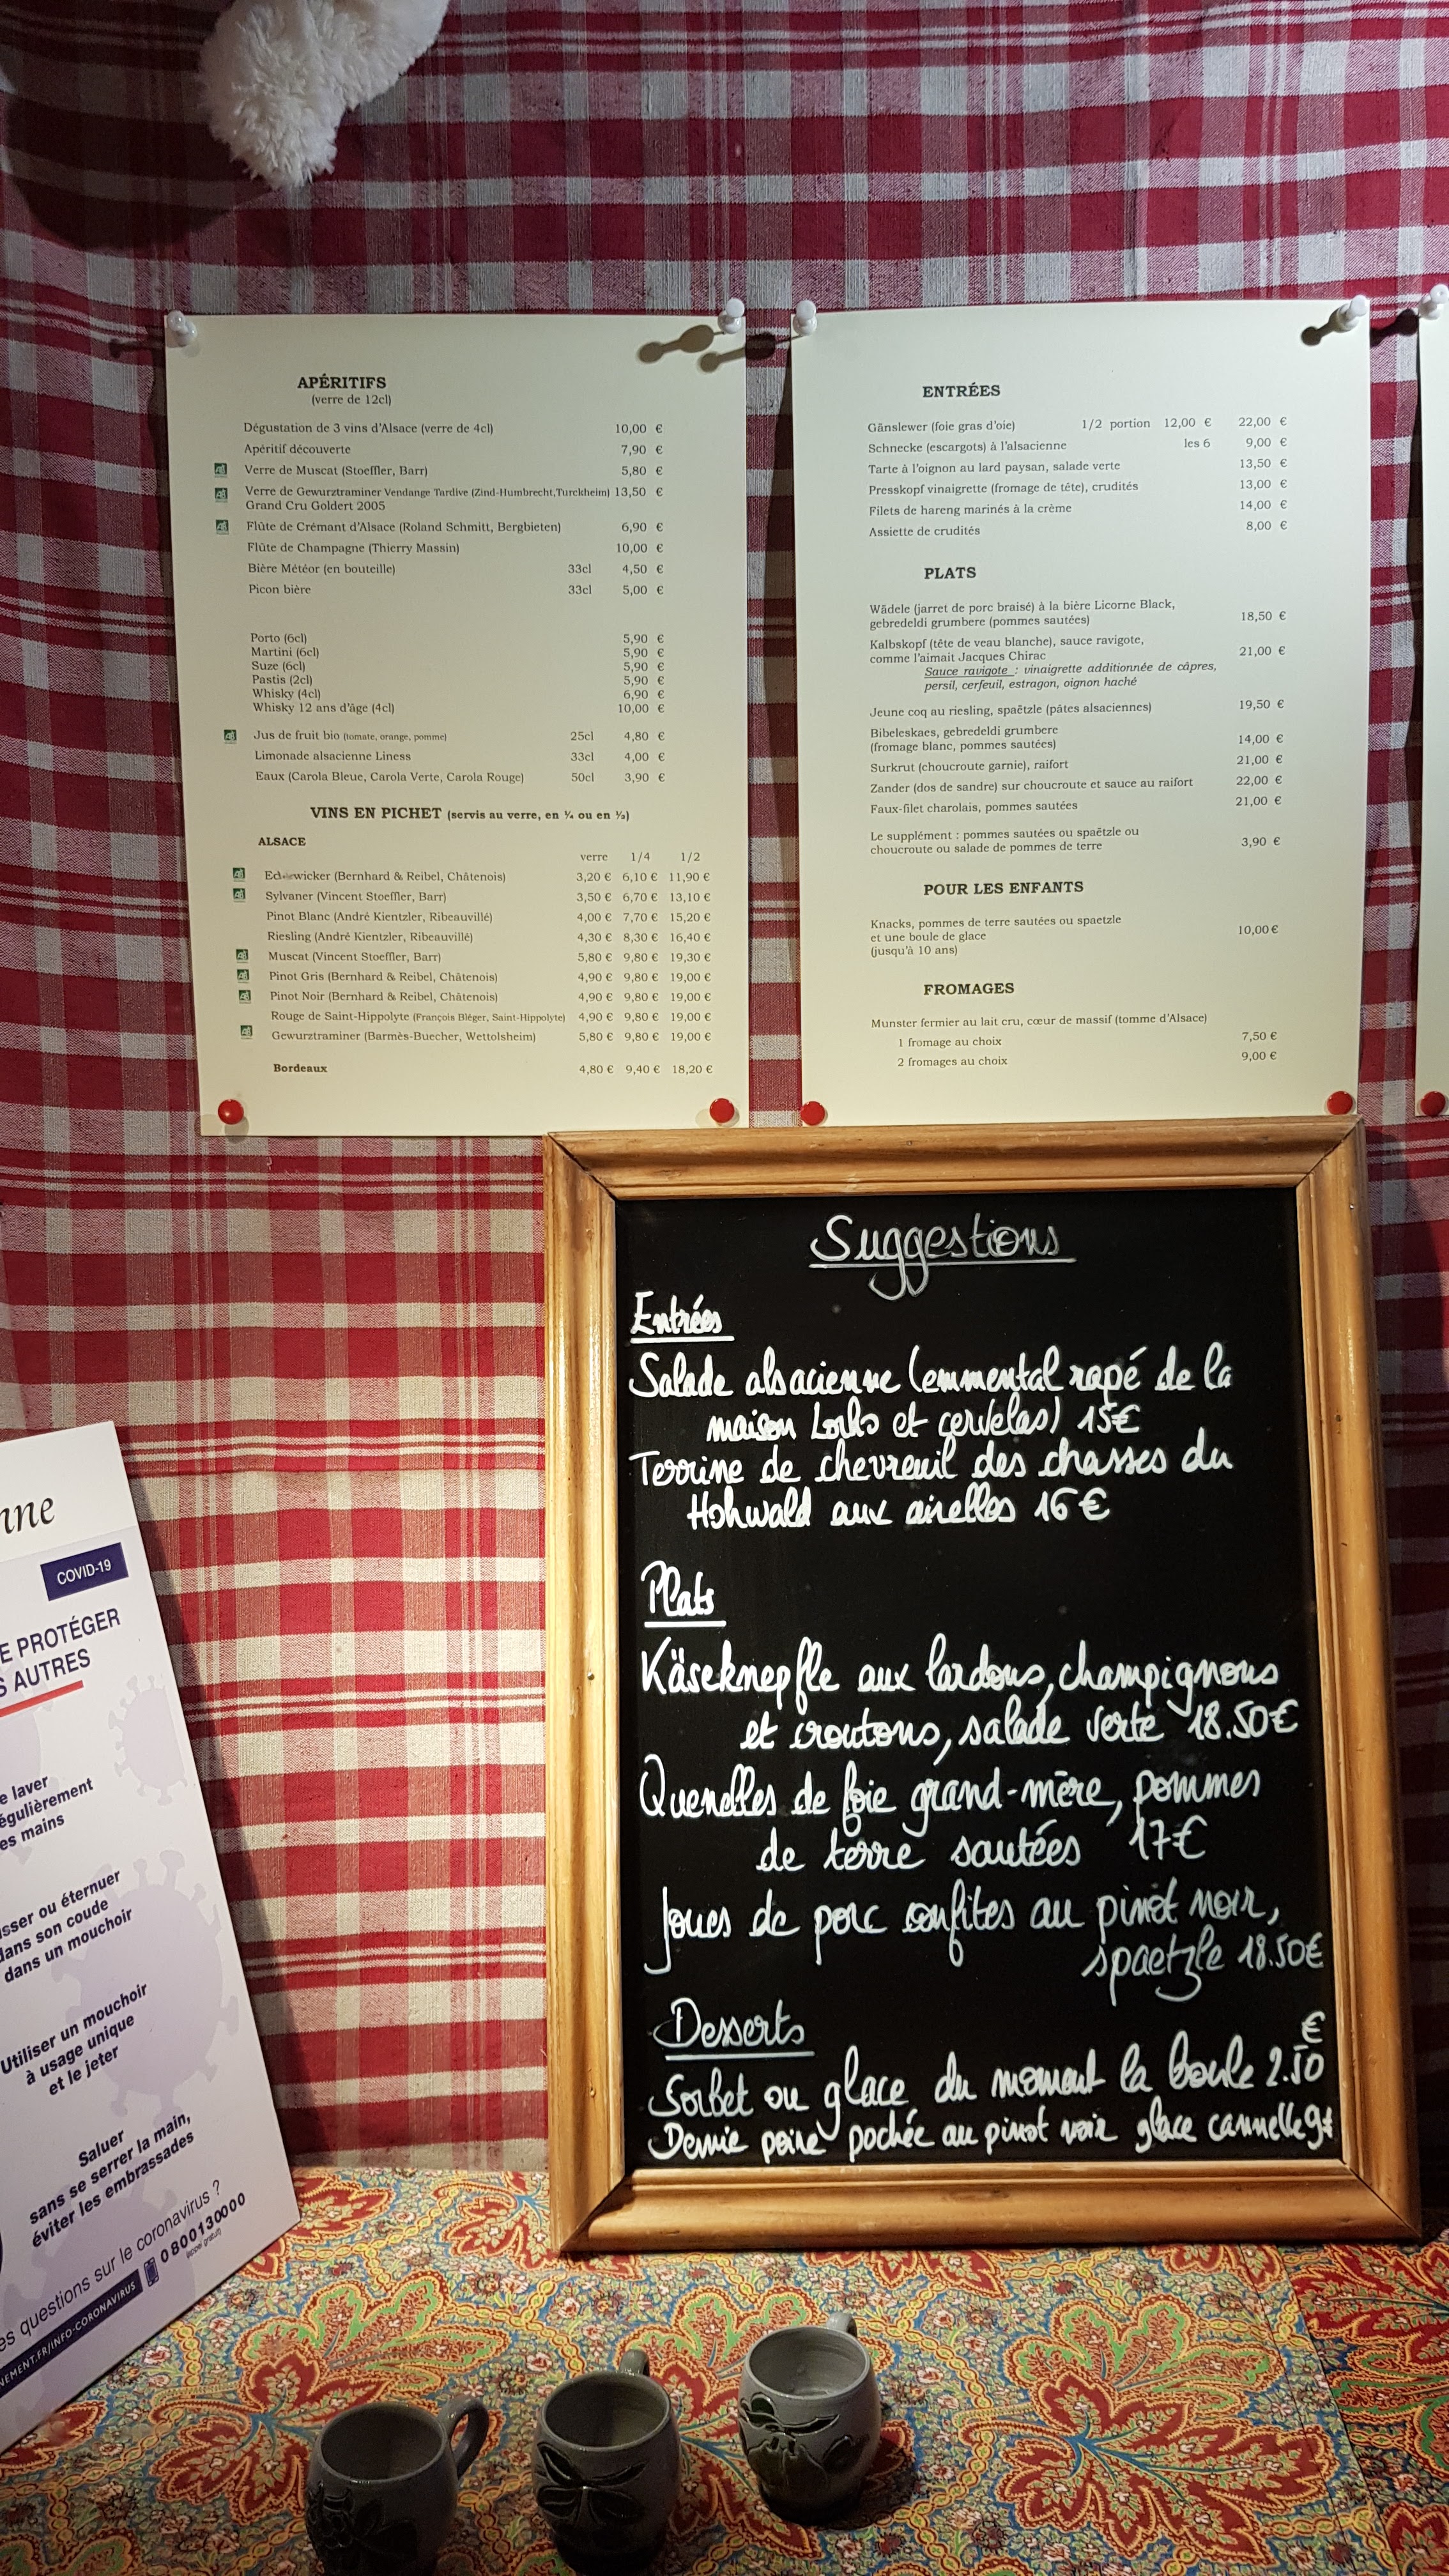 APÉRITIFS
(verre de 12cl)
Dégustation de 3 vins d'Alsace (verre de 4cl) 10,00 €
Apéritif découverte 7,90 €
Verre de Muscat (Stoeffler, Barr) 5,80 €
Verre de Gewurztraminer Vendange Tardive (Zind-Humbrecht,Turckheim) 13,50 €
Grand Cru Goldert 2005
Flûte de Crémant d'Alsace (Roland Schmitt, Bergbieten) 6,90 €
Flûte de Champagne (Thierry Massin) 10,00 €
Bière Météor (en bouteille) 33cl 4,50 €
Picon bière 33cl 5,00 €
Porto (6cl) 5,90 €
Martini (6cl) 5,90 €
Suze (6cl) 5,90 €
Pastis (2cl) 5,90 €
Whisky (4cl) 6,90 €
Whisky 12 ans d'âge (4cl) 10,00 €
Jus de fruit bio (tomate, orange, pomme) 25cl 4,80 €
Limonade alsacienne Liness 33cl 4,00 €
Eaux (Carola Bleue, Carola Verte, Carola Rouge) 50cl 3,90 €
VINS EN PICHET (servis au verre, en ¼ ou en ½)
ALSACE
verre 1/4 1/2
(Bernhard & Reibel, Châtenois) 3,20 € 6,10 € 11,90 €
Sylvaner (Vincent Stoeffler, Barr) 3,50 € 6,70 € 13,10 €
Pinot Blanc (André Kientzler, Ribeauvillé) 4,00 € 7,70 € 15,20 €
Riesling (André Kientzler, Ribeauvillé) 4,30 € 8,30 € 16,40 €
Muscat (Vincent Stoeffler, Barr) 5,80 € 9,80 € 19,30 €
Pinot Gris (Bernhard & Reibel, Châtenois) 4,90 € 9,80 € 19,00 €
Pinot Noir (Bernhard & Reibel, Châtenois) 4,90 € 9,80 € 19,00 €
Rouge de Saint-Hippolyte (François Bléger, Saint-Hippolyte) 4,90 € 9,80 € 19,00 €
Gewurztraminer (Barmès-Buecher, Wettolsheim) 5,80 € 9,80 € 19,00 €
Bordeaux 4,80 € 9,40 € 18,20 €
ENTRÉES
Gänslewer (foie gras d'oie) 1/2 portion 12,00 € 22,00 €
Schnecke (escargots) à l'alsacienne les 6 9,00 €
Tarte à l'oignon au lard paysan, salade verte 13,50 €
Presskopf vinaigrette (fromage de tête), crudités 13,00 €
Filets de hareng marinés à la crème 14,00 €
Assiette de crudités 8,00 €
PLATS
Wädele (jarret de porc braisé) à la bière Licorne Black,
gebredeldi grumbere (pommes sautées) 18,50 €
Kalbskopf (tête de veau blanche), sauce ravigote,
comme l'aimait Jacques Chirac 21,00 €
Sauce ravigote : vinaigrette additionnée de câpres,
persil, cerfeuil, estragon, oignon haché
Jeune coq au riesling, spaëtzle (pâtes alsaciennes) 19,50 €
Bibeleskaes, gebredeldi grumbere
(fromage blanc, pommes sautées) 14,00 €
Surkrut (choucroute garnie), raifort 21,00 €
Zander (dos de sandre) sur choucroute et sauce au raifort 22,00 €
Faux-filet charolais, pommes sautées 21,00 €
Le supplément : pommes sautées ou spaëtzle ou
choucroute ou salade de pommes de terre 3,90 €
POUR LES ENFANTS
Knacks, pommes de terre sautées ou spaetzle
et une boule de glace 10,00 €
(jusqu'à 10 ans)
FROMAGES
Munster fermier au lait cru, cœur de massif (tomme d'Alsace)
1 fromage au choix 7,50 €
2 fromages au choix 9,00 €
Suggestions
Entrées
Salade alsacienne (emmental rapé de la
maison et cervelas) 15€
Terrine de chevreuil des chasses du
Hohwald aux airelles 16€
Plats
Käseknepfle aux lardons, champignons
et croutons, salade verte 18.50€
Quenelles de foie grand-mère, pommes
de terre sautées 17€
Joues de porc confites au pinot noir,
spaetzle 18.50€
Desserts
Sorbet ou glace du moment la boule 2.50 €
Demie poire pochée au pinot noir glace cannelle 9€
nne
COVID-19
E PROTÉGER
S AUTRES
e laver
égulièrement
es mains
sser ou éternuer
dans son coude
dans un mouchoir
Utiliser un mouchoir
à usage unique
et le jeter
Saluer
sans se serrer la main,
éviter les embrassades
es questions sur le coronavirus ?
NEMENT.FR/INFO-CORONAVIRUS
0 800 130 000
(appel gratuit)